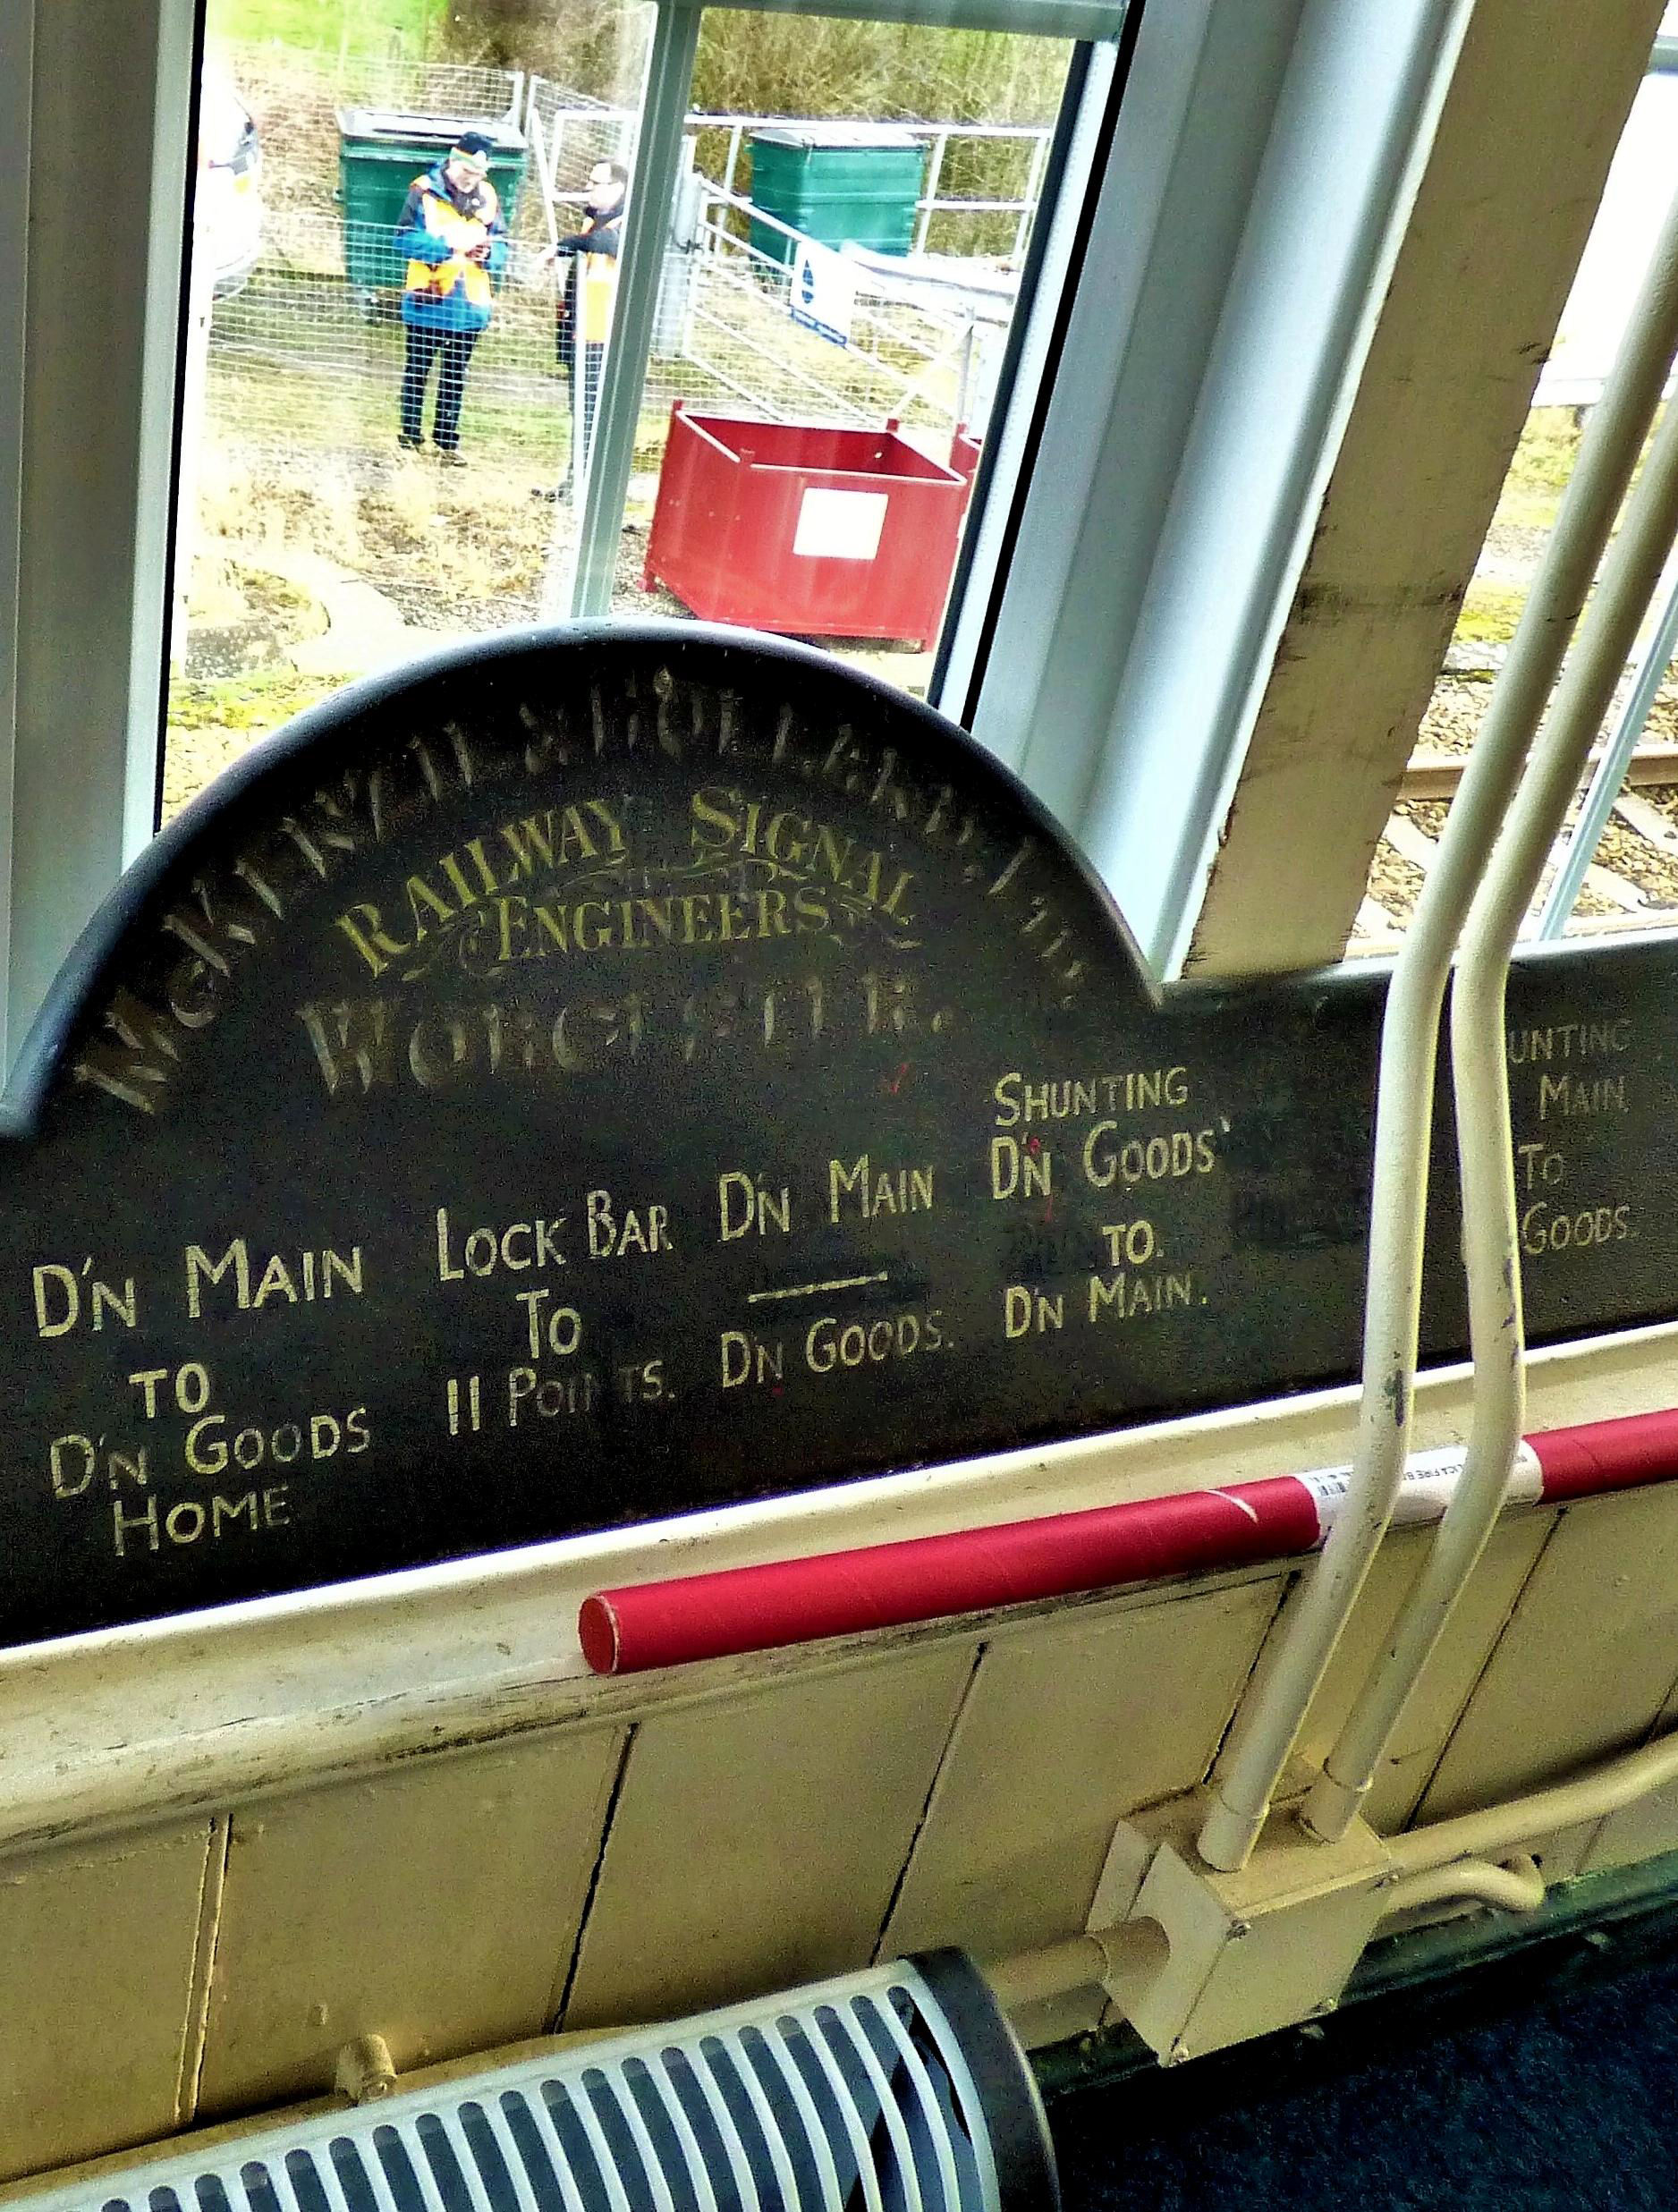 McKENZIE & HOLLAND, LTD
RAILWAY SIGNAL
ENGINEERS
WORCESTER.
D'N MAIN
TO
D'N GOODS
HOME
LOCK BAR
TO
11 POINTS.
D'N MAIN
—
D'N GOODS.
SHUNTING
D'N GOODS'
TO.
D'N MAIN.
UNTING
MAIN.
To
GOODS.